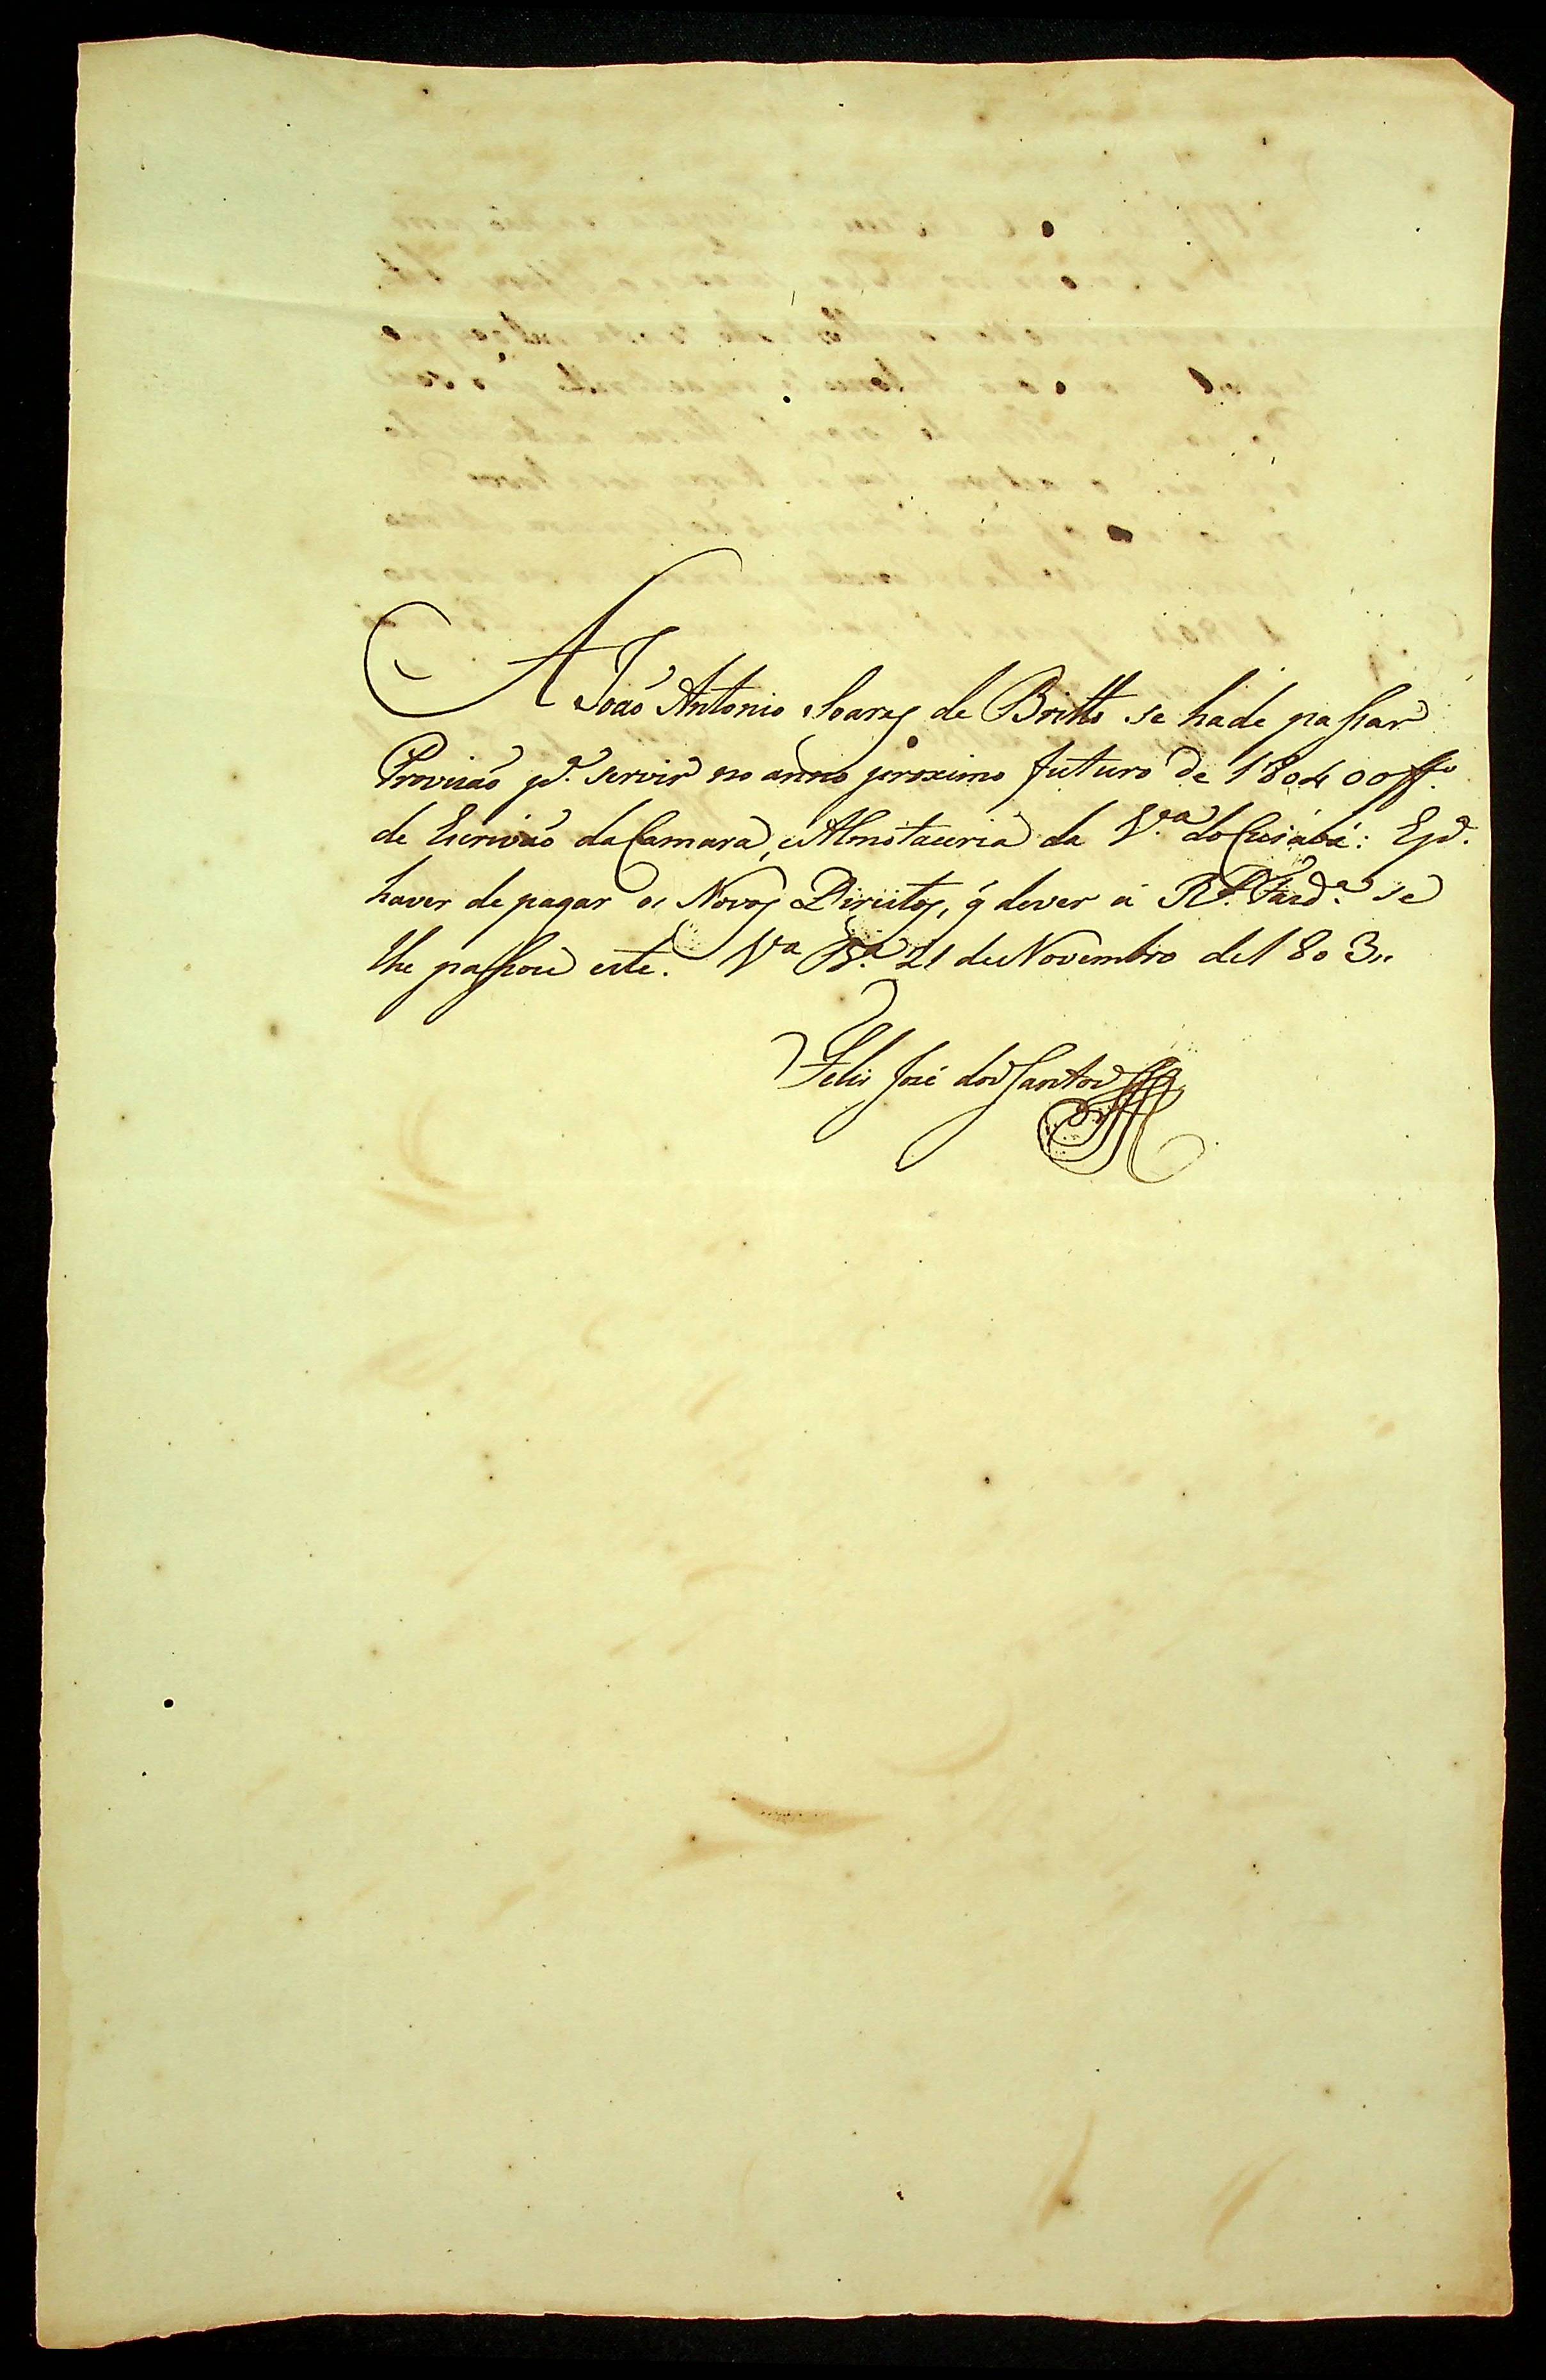 A João Antonio Soares de Britto se hade passar
Provisão p.ª servir no anno proximo futuro de 1804 o Off.º
de Escrivão da Camara, e Almotaceria da V.ª do Cuiabá: E p.ª
haver de pagar os Novos Direitos, q̃ dever á R.l Fazd.ª se
lhe passou este. V.ª B.ª 21 de Novembro de 1803,,
Felis José dos Santos